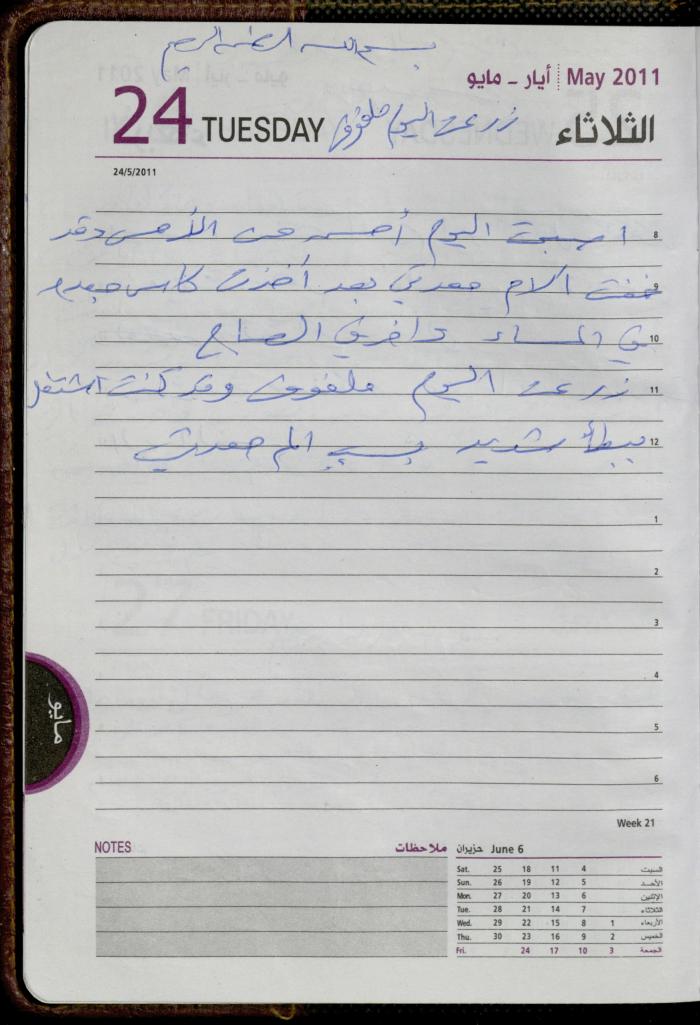 بسم الله الرحمن الرحيم
أيار - مايو May 2011
24 TUESDAY زرعت اليوم ملفوف الثلاثاء
24/5/2011
اصبحت اليوم أحسن من الأمس وقد 8
خفت آلام معدتي بعد أخذت كاس 9
في المساء واخرى في الصباح 10
زرعت اليوم ملفوف وقد كنت اشتغل 11
ببطأ شديد بسبب الم معدتي 12
1
2
3
4
5
6
مايو
Week 21
NOTES ملاحظات
حزيران June 6
Sat. 25 18 11 4 السبت
Sun. 26 19 12 5 الأحد
Mon. 27 20 13 6 الإثنين
Tue. 28 21 14 7 الثلاثاء
Wed. 29 22 15 8 1 الأربعاء
Thu. 30 23 16 9 2 الخميس
Fri. 24 17 10 3 الجمعة